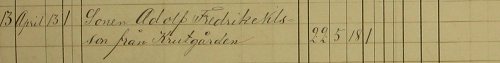 13 April 13 1 Sonen Adolf Fredrik Nils-
son från Krutgården 22 5 18 1